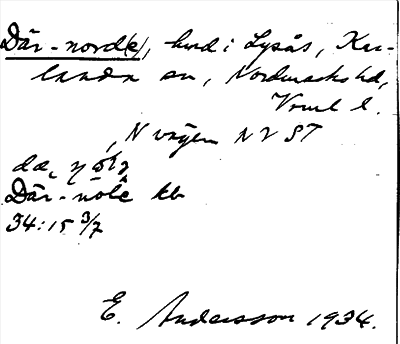 Där-nord(e), hmd i Lysås, Kar-
landa sn, Nordmarks hd,
Vrml l.
N vägen NV ST
dæ,
Där-nole kb
34:15 3/7
E. Andersson 1934.